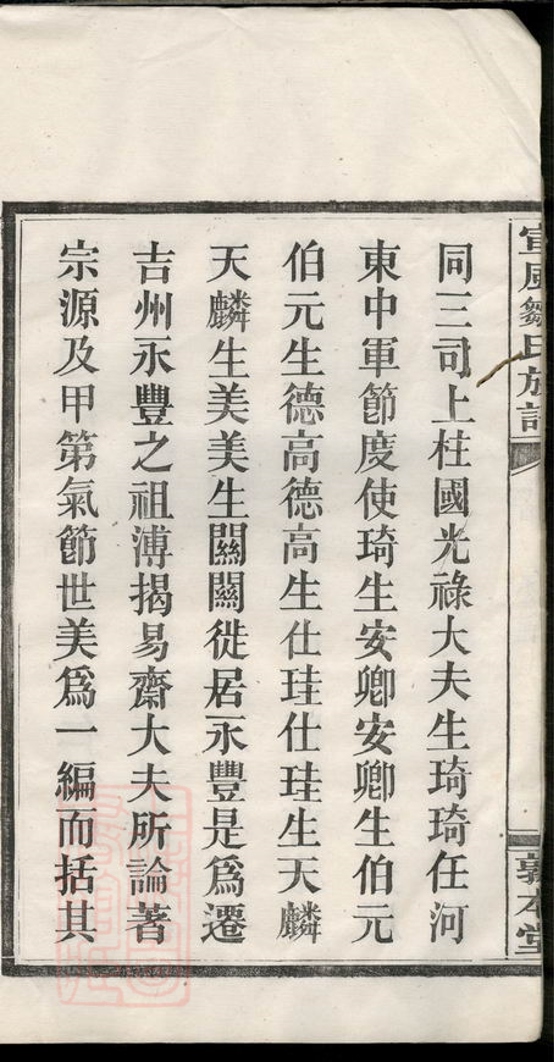 宜風鄒氏族譜
敦本堂
同三司上柱國光祿大夫生琦琦任河
東中軍節度使琦生安卿安卿生伯元
伯元生德高德高生仕珪仕珪生天麟
天麟生美美生關關徙居永豐是爲遷
吉州永豐之祖溥揭易齋大夫所論著
宗源及甲第氣節世美爲一編而括其